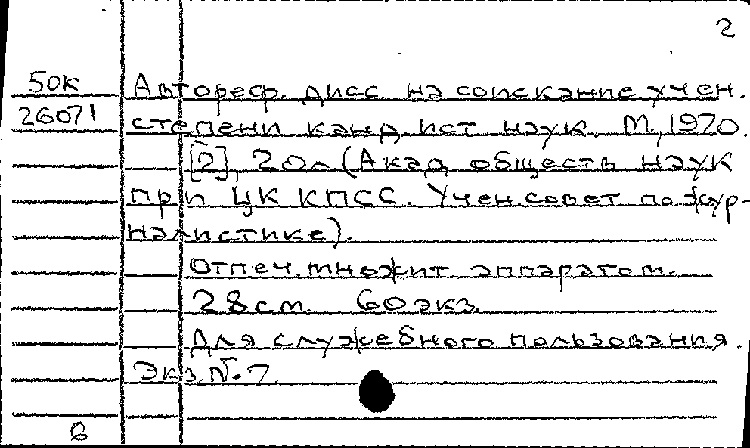 2
50к Автореф. дисс. на соискание учен.
26071 степени канд. ист. наук. М., 1970.
[2], 20л (Акад. обществ. наук
при ЦК КПСС. Учен. совет по жур-
налистике).
Отпеч. множит. аппаратом.
28см. 60экз.
Для служебного пользования.
Экз. №7